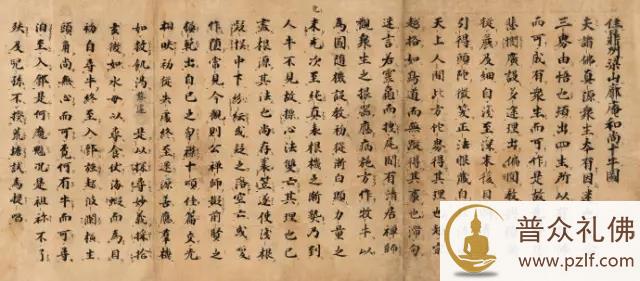 住鼎州梁山廓庵和尚十牛圖
夫諸佛真源衆生本有因迷
三界由悟也頓出四生所以
而可成有衆生而可作是故
悲憫廣設多途理出偏圓教
從麤及細自淺至深末後目
引得頭陀微笑正法眼藏自
天上人間此方佗界得其理也超宗
越格如鳥道而無蹤得其事也滯句
迷言若靈龜而曳尾間有清居禪師
觀衆生之根器應病施方作牧牛以
為圖隨機設教初從漸白顯力量之
未充次至純真表根機之漸熟乃至
人牛不見故標心法雙亡其理也已
盡根源其法也尚存莎笠遂使淺根
疑誤中下紛紜或疑之落空亡或喚
作墮常見今觀則公禪師擬前賢之
模範出自己之胸襟十頌佳篇交光
相映初從失處終至還源善應群機
如救飢渴慈遠是以探尋妙義採拾
玄微如水母以尋飡依海蝦而為目
初自尋牛終至入鄽強起波瀾橫生
頭角尚無心而可覓何有牛而可尋
洎至入鄽是何魔魅況是祖禰不了
殃及兒孫不揆荒唐試為提唱
普众礼佛
www.pzlf.com